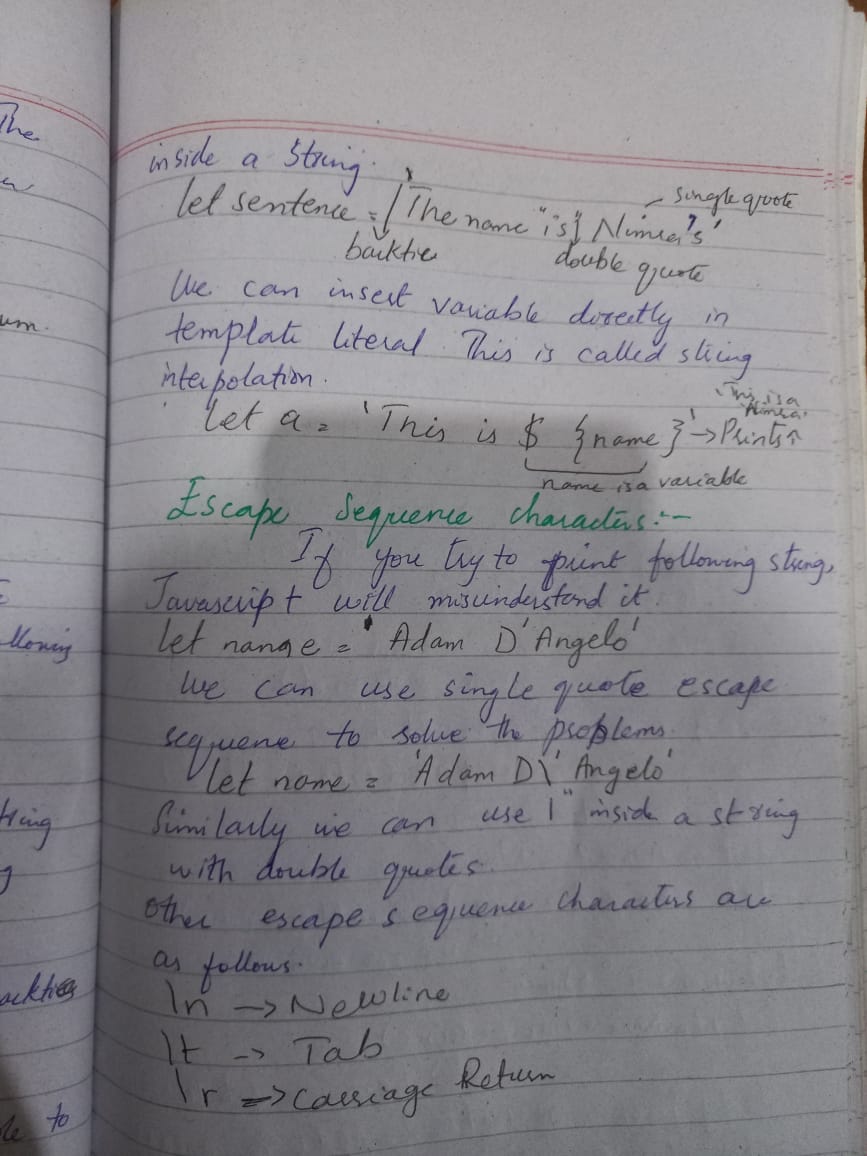 The
um.
llowing
tring
g
backties
le to
inside a String.
let sentence = ` The name "is" Nimra's`
single quote
backtie
double quote
We can insert variable directly in
template literal. This is called string
interpolation.
This is a
Nimra.
let a = `This is $ {name}` → Prints
name is a variable
Escape Sequence characters:-
If you try to print following string,
Javascript will misunderstand it.
let name = ' Adam D'Angelo'
We can use single quote escape
sequene to solve the problems.
let name = 'Adam D\' Angelo'
Similarly we can use \" inside a string
with double quotes.
Other escape sequence characters are
as follows.
\n → Newline
\t → Tab
\r → Carriage Return